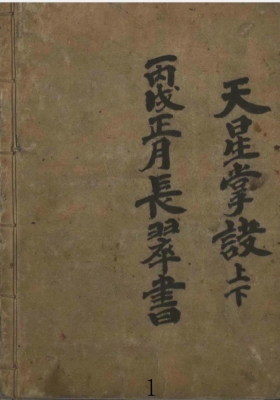 天星掌 上下
丙戌正月長翠書
1